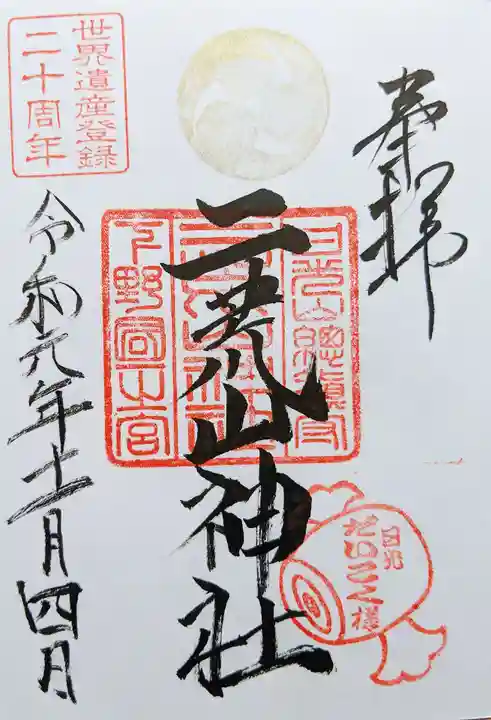 奉拝
日光山總鎮守
二荒山神社
二荒山神社
下野國一之宮
日光
だいこく様
世界遺産登録
二十周年
令和元年十一月四日